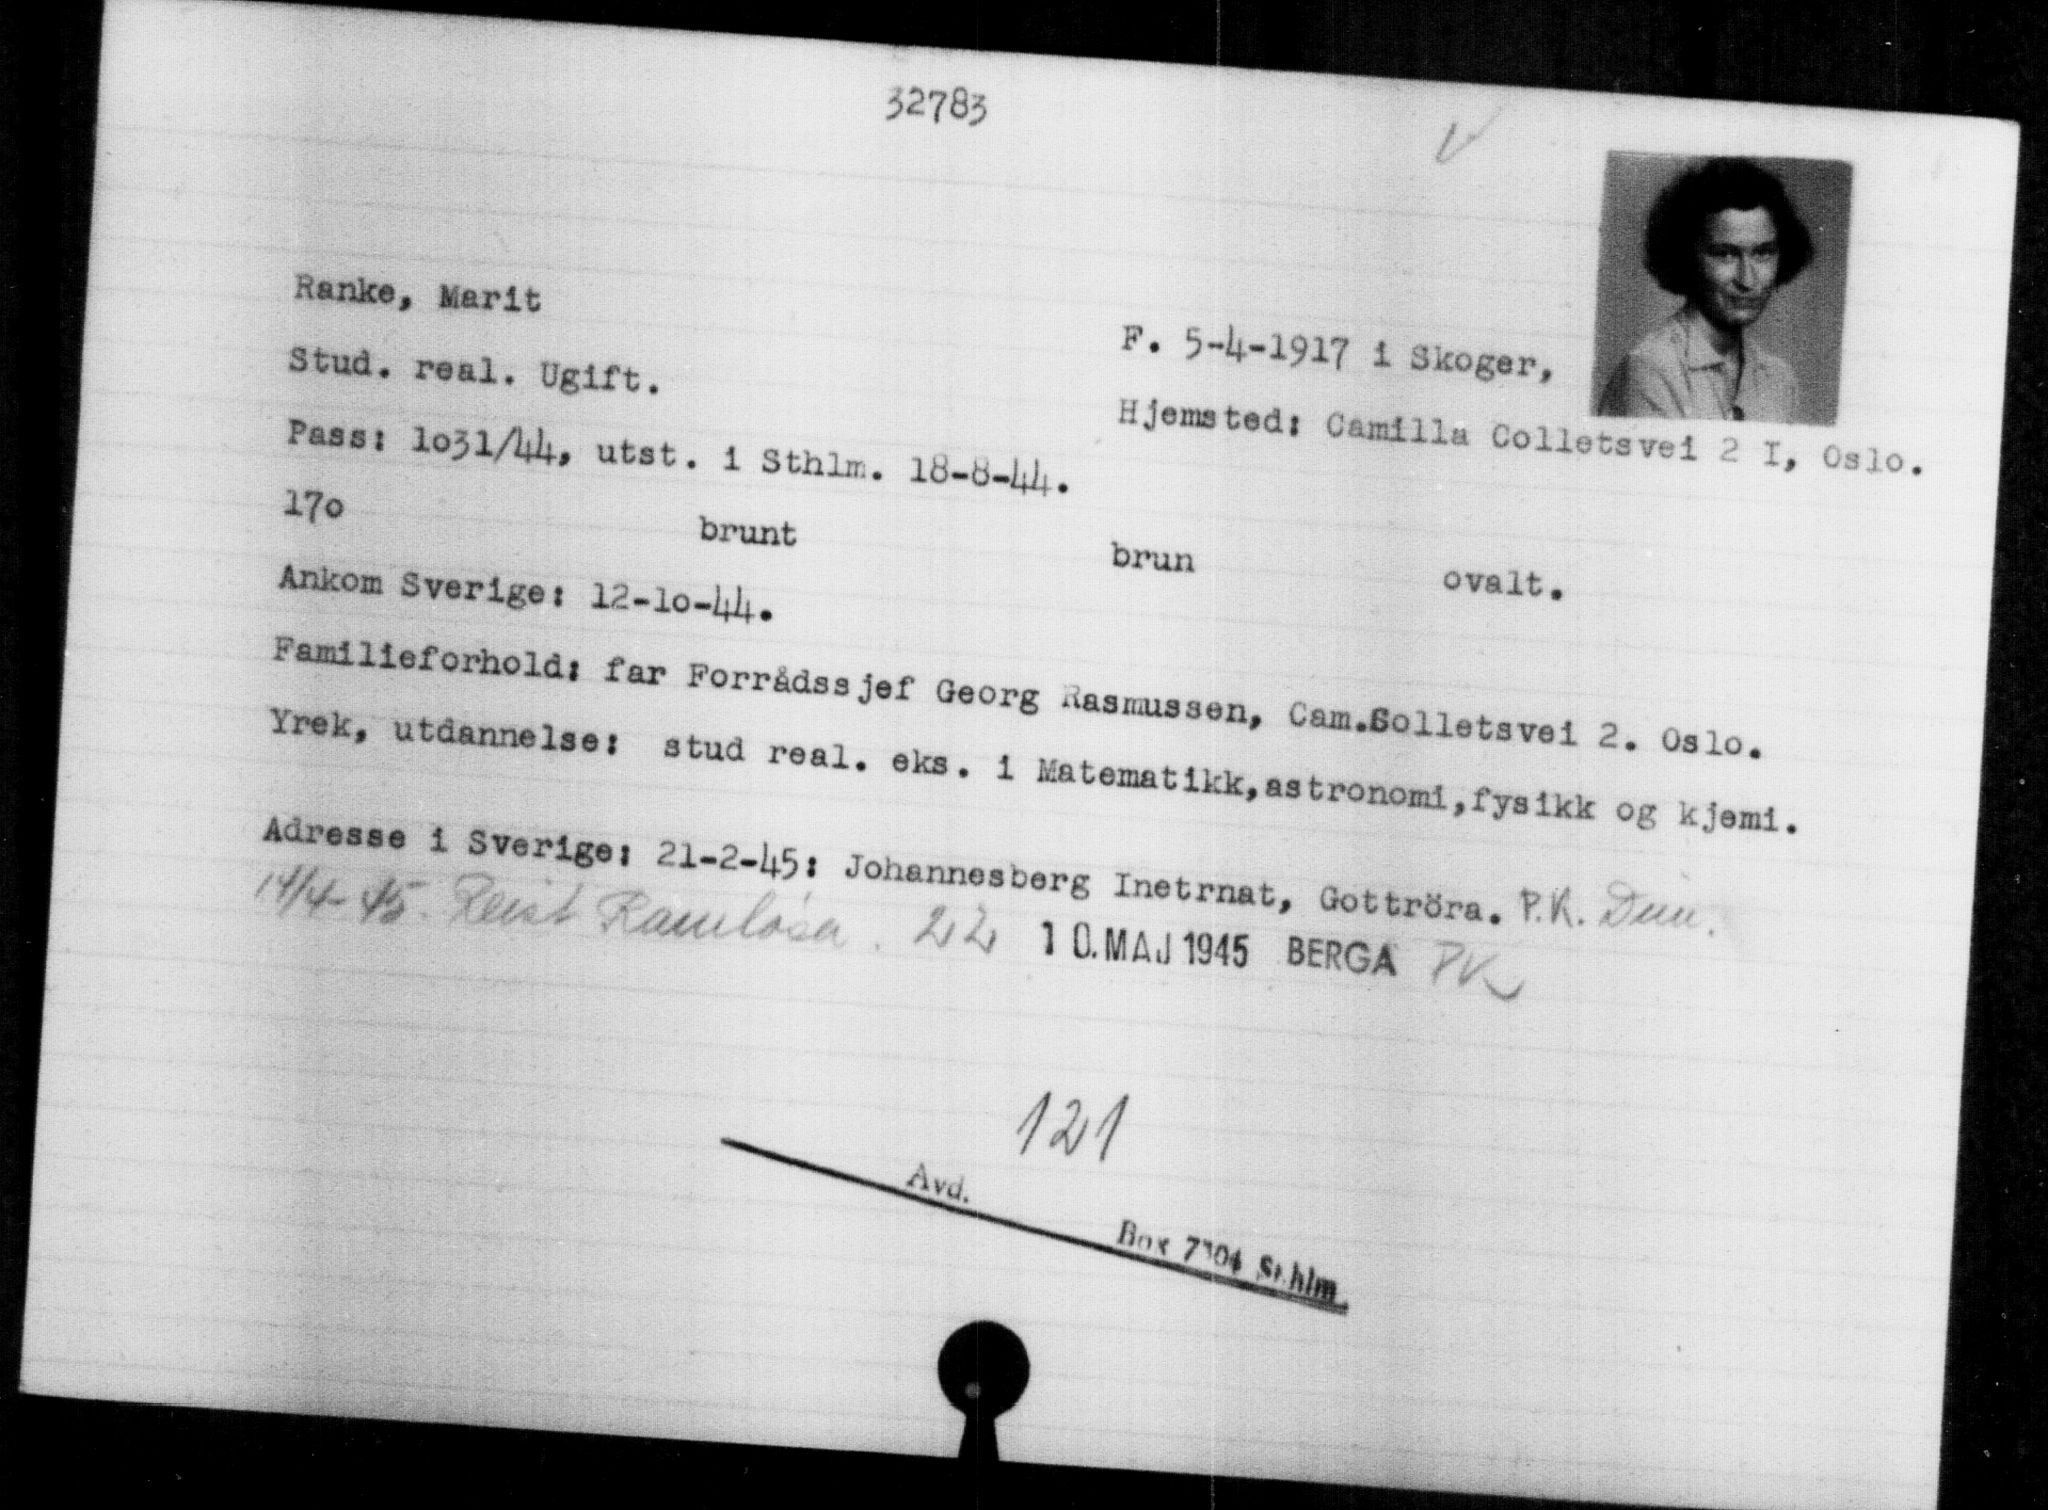 32783
Ranke, Marit
F. 5-4-1917 i Skoger,
Stud. real. Ugift.
Hjemsted: Camilla Colletsvei 2 I, Oslo.
Pass: 1o31/44, utst. i Sthlm. 18-8-44.
17o brunt brun ovalt.
Ankom Sverige: 12-1o-44.
Familieforhold: far Forrådssjef Georg Rasmussen, Cam.Colletsvei 2. Oslo.
Yrek, utdannelse: stud real. eks. i Matematikk,astronomi,fysikk og kjemi.
Adresse i Sverige: 21-2-45: Johannesberg Inetrnat, Gottröra. P.K.
14/4-45. Reist Ramlösa. 10. MAJ 1945 BERGA PK
121
Avd.
Box 7304 Sthlm